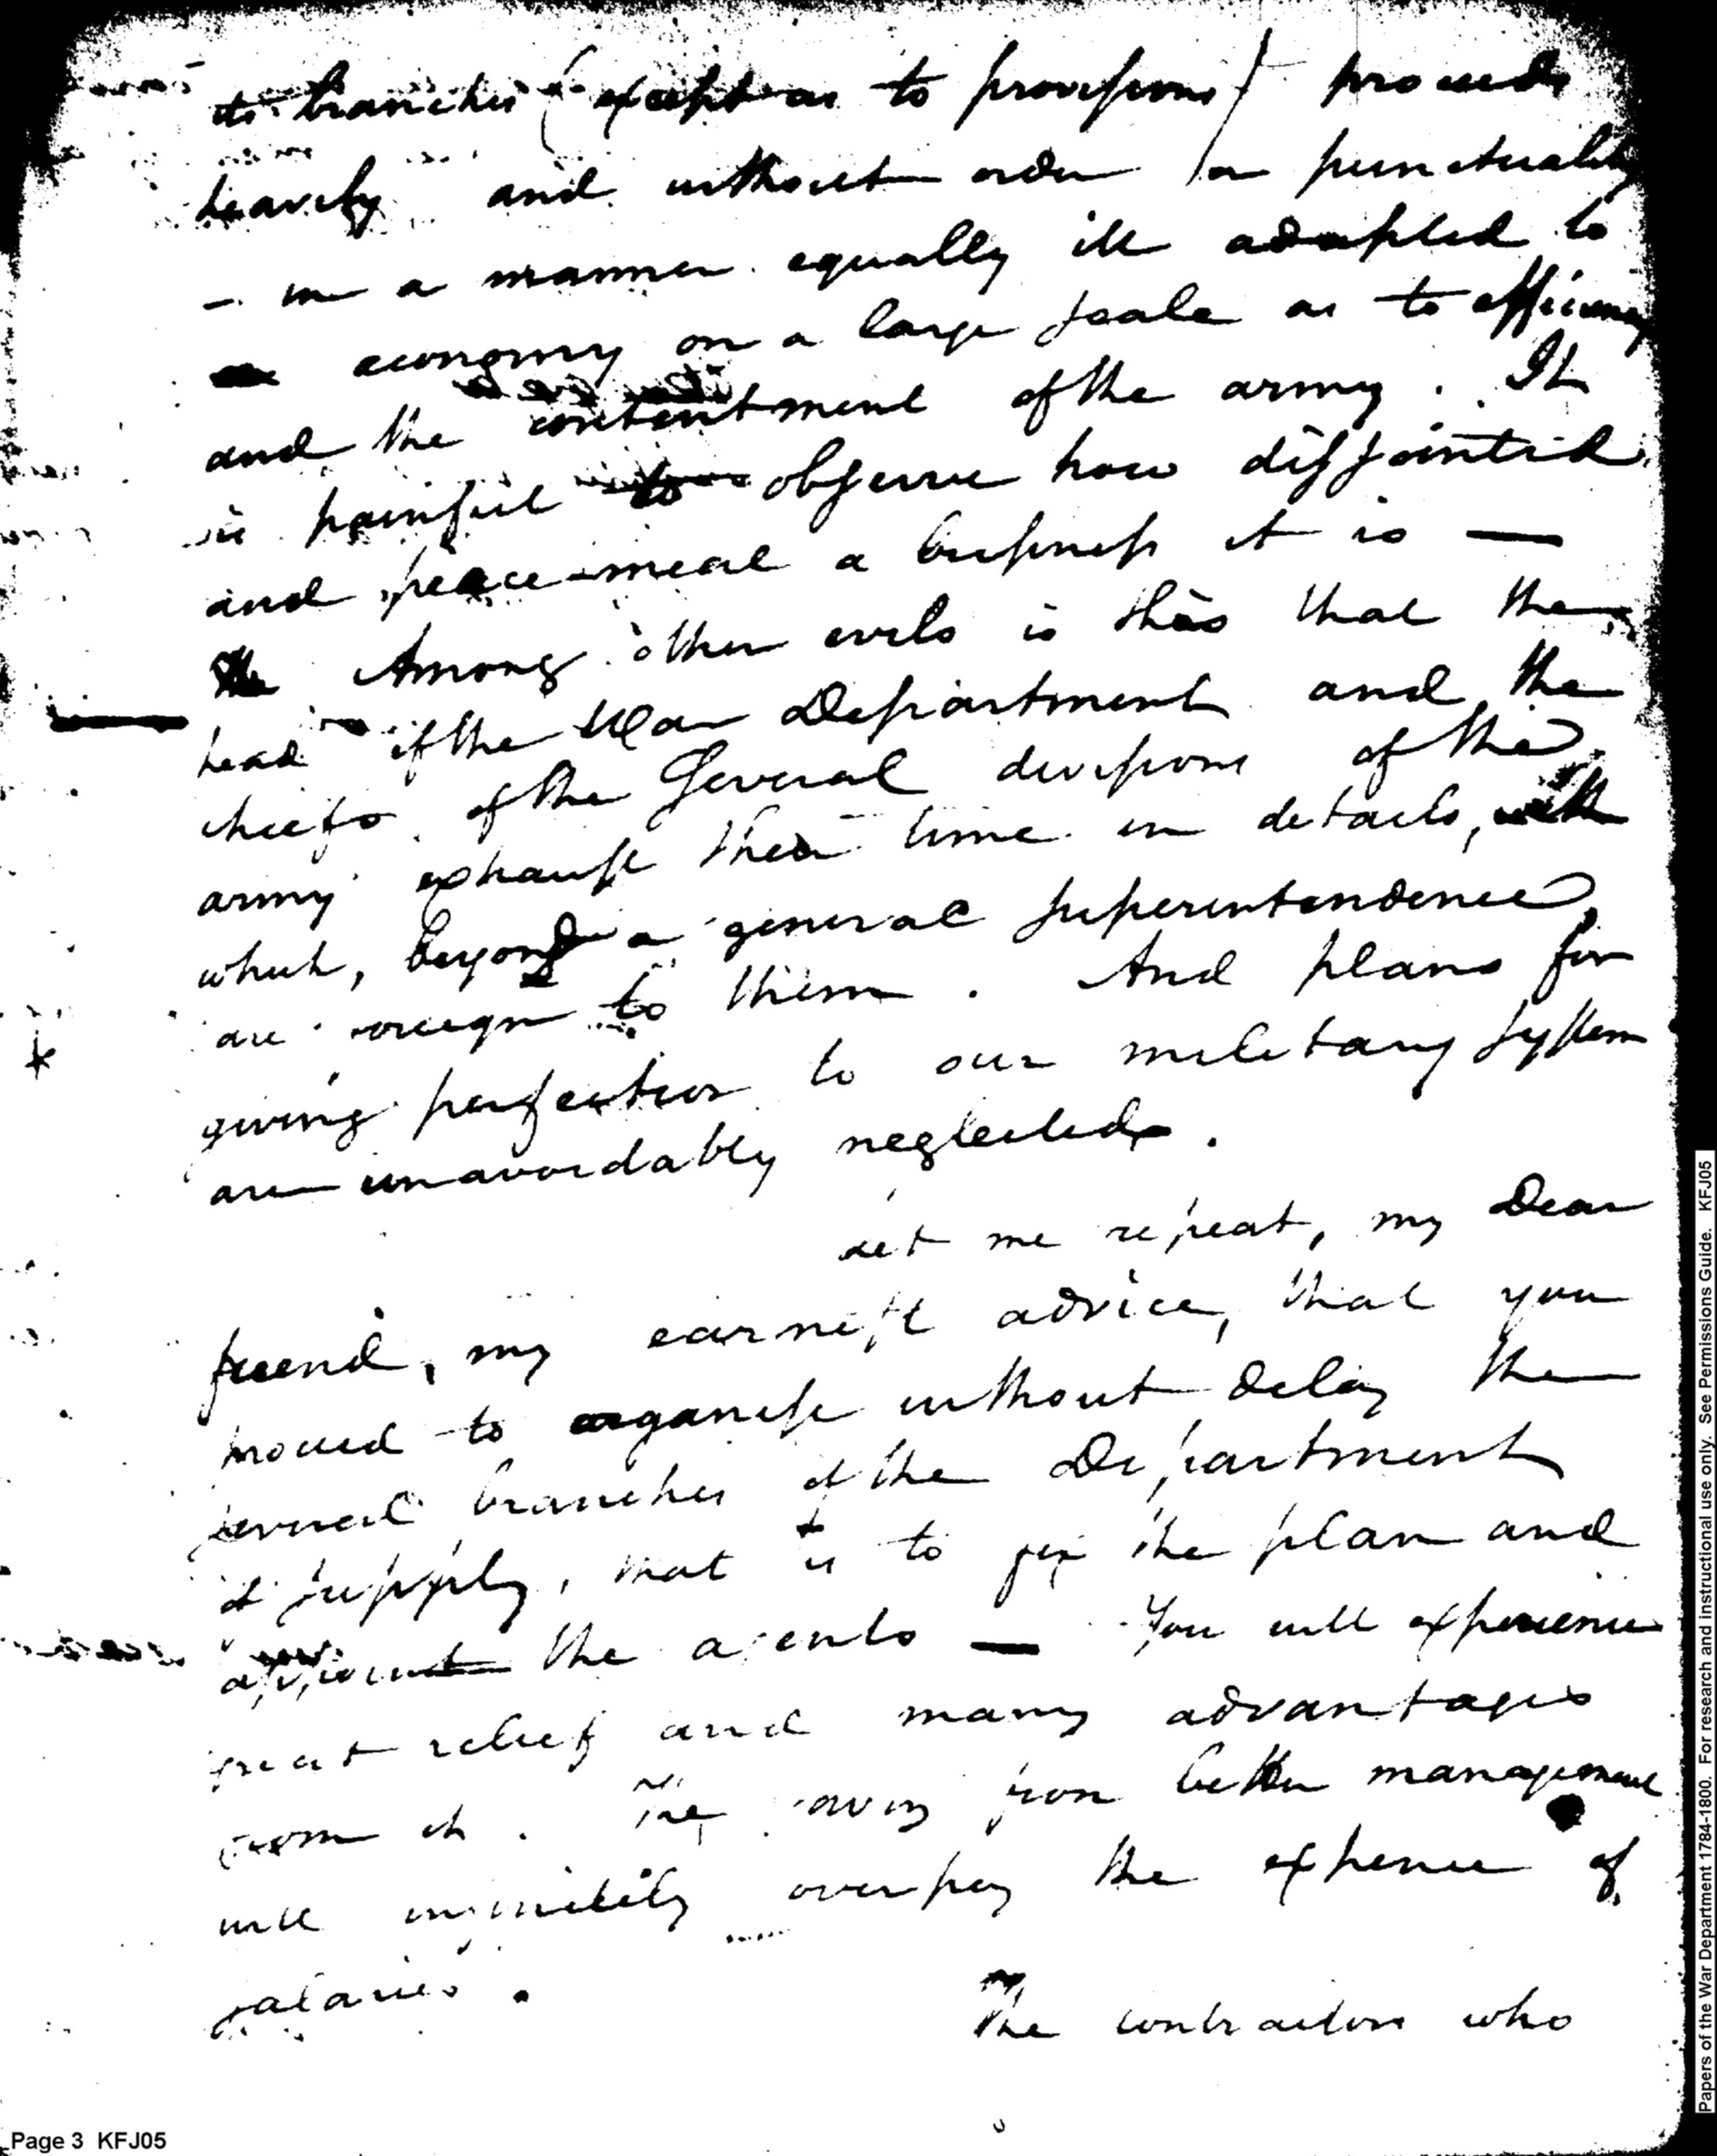 its branches (except as to provisions) proceeds
heavily and without order or punctuality
— in a manner equally ill adapted to
economy on a large scale as to efficiency
and the contentment of the army. It
is painful to observe how disjointed
and peace-meal a business it is —
Among other evils is this that the
head of the War Department and the
chiefs of the several divisions of the
army exhaust their time in details,
which, beyond a general superintendence,
are foreign to them. And plans for
giving perfection to our military system
are unavoidably neglected.
Let me repeat, my Dear
friend, my earnest advice, that you
proceed to organise without delay the
several branches of the Department
of supply, that is to fix the plan and
appoint the agents — You will experience
great relief and many advantages
from it. The saving from better management
will infinitely overpay the expence of
salaries.
The contractors who
Page 3 KFJ05
Papers of the War Department 1784-1800. For research and Instructional use only. See Permissions Guide. KFJ05